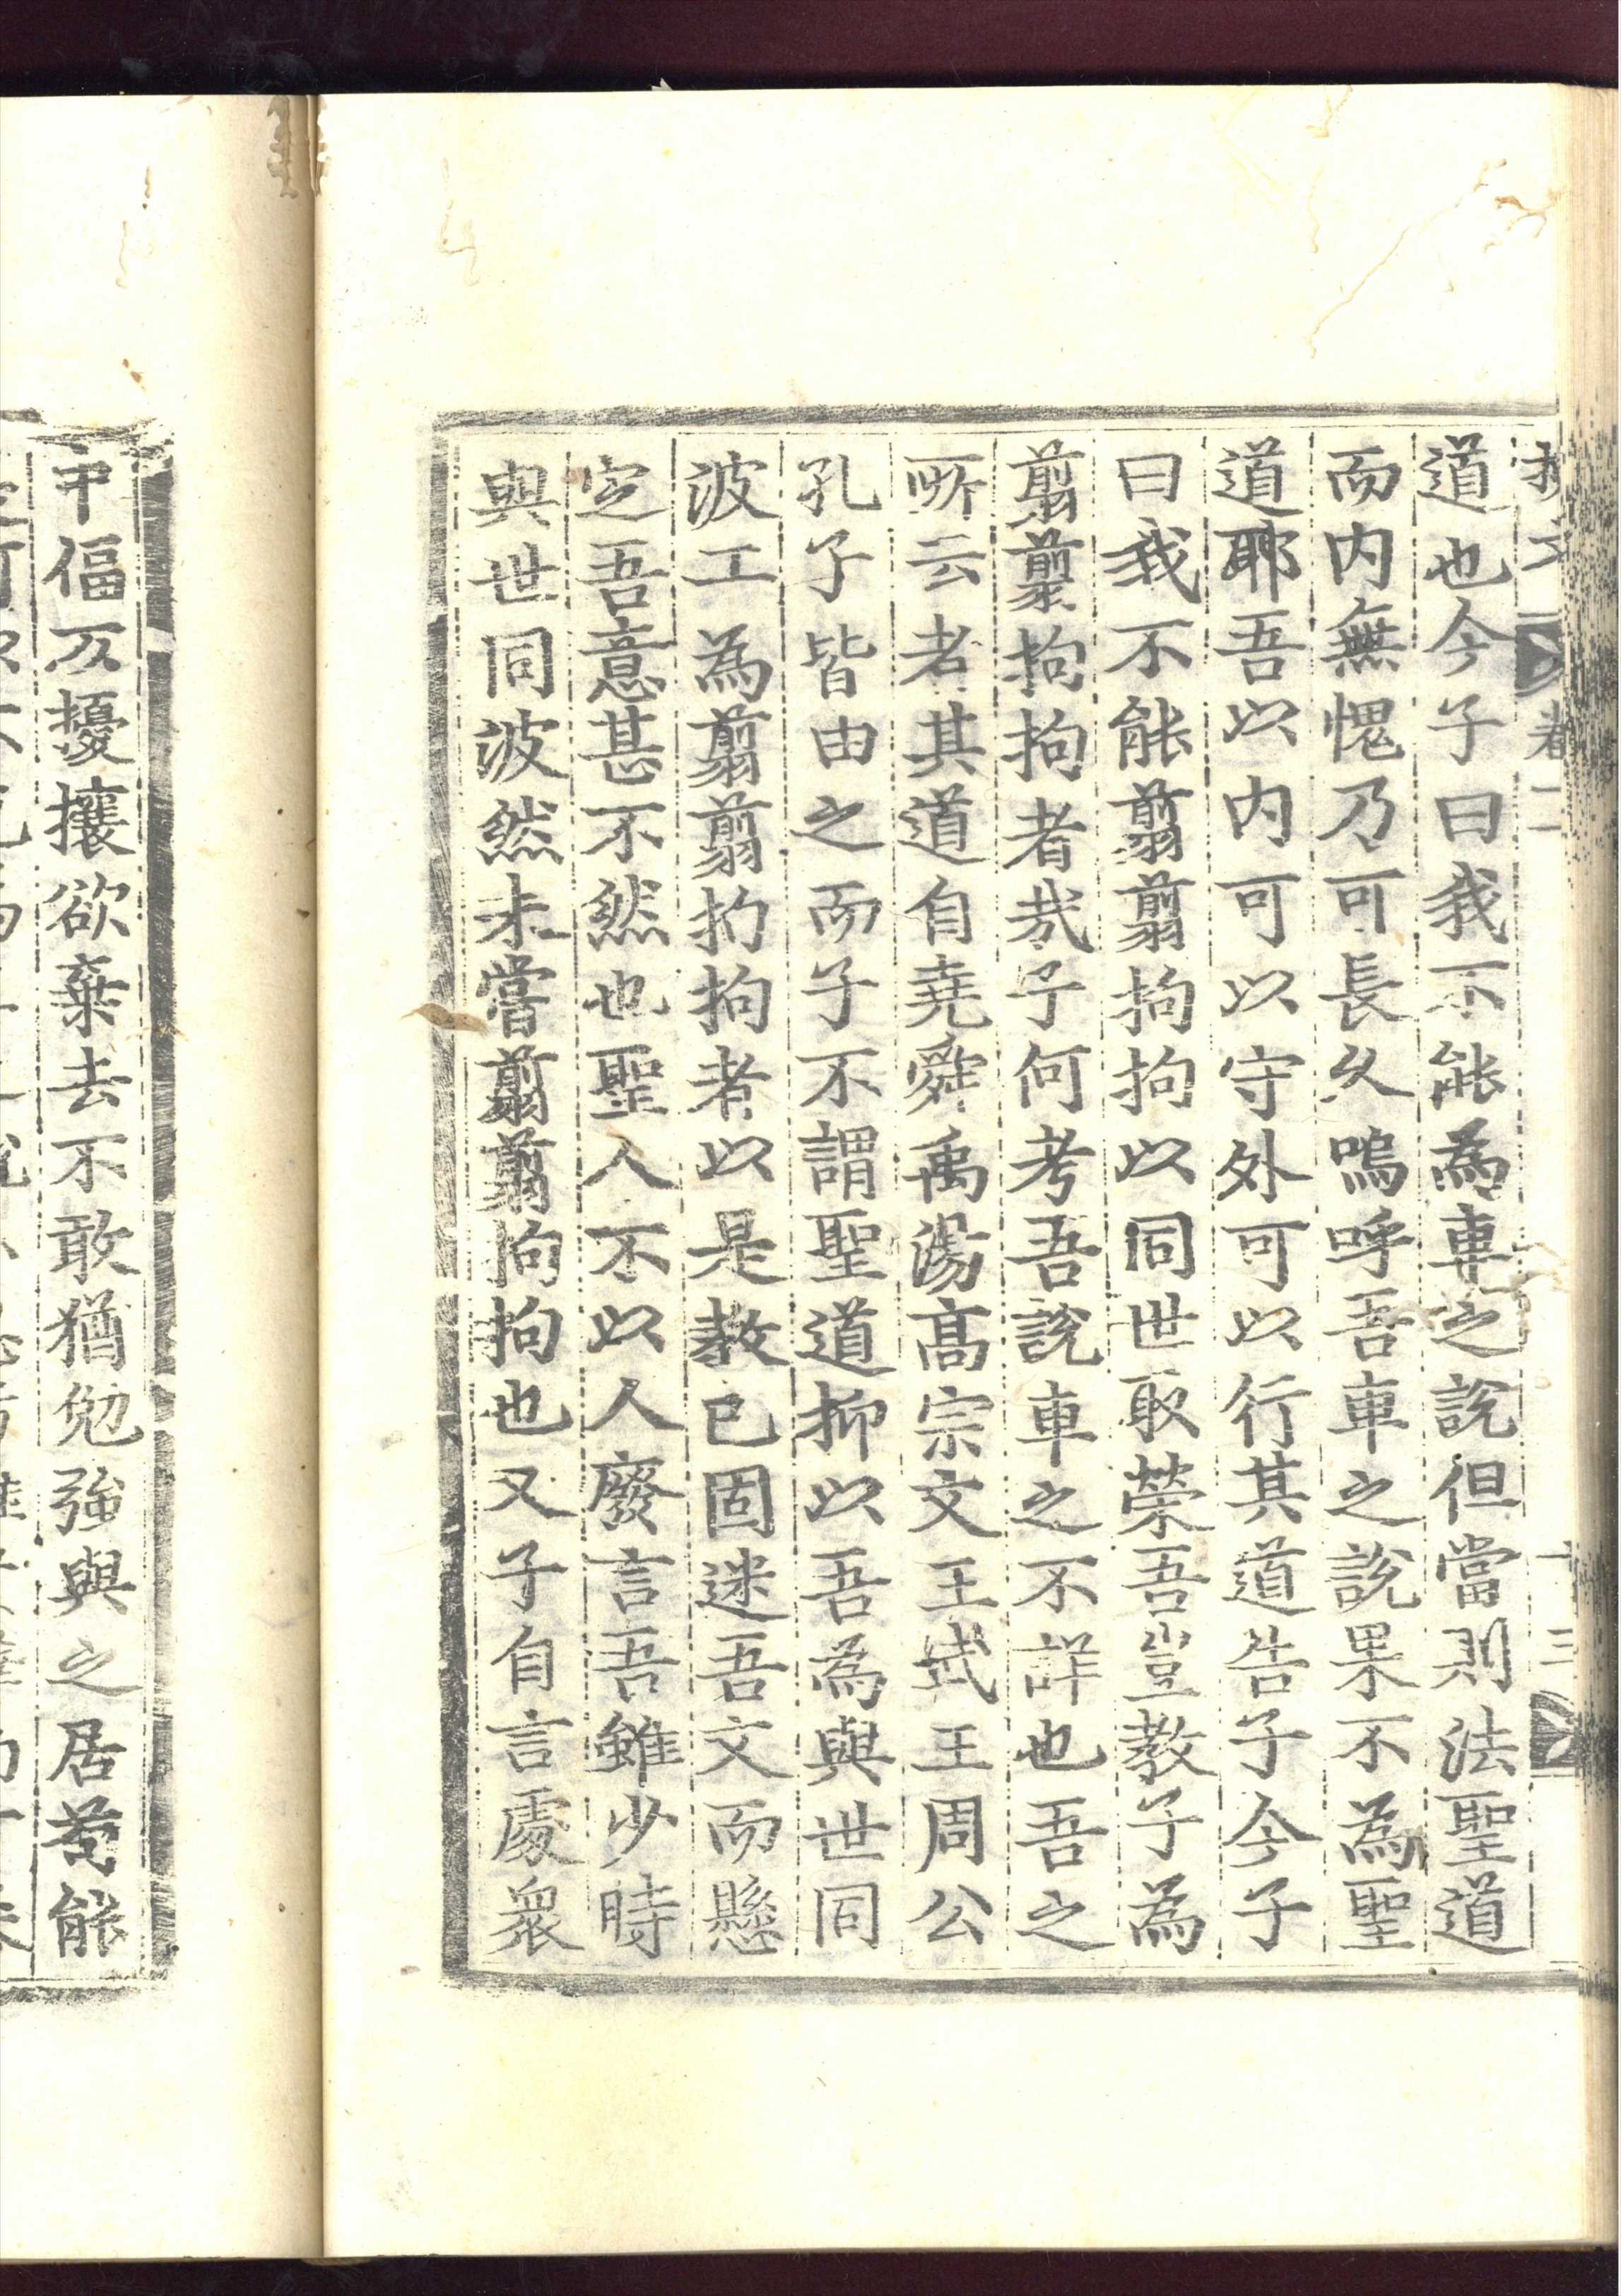 卷二
十三
道也今子曰我不能為車之說但當則法聖道
而内無愧乃可長久嗚呼吾車之說果不為聖
道耶吾以内可以守外可以行其道告子今子
曰我不能翦翦拘拘以同世取榮吾豈教子為
翦翦拘拘者哉子何考吾說車之不詳也吾之
所云者其道自堯舜禹湯高宗文王武王周公
孔子皆由之而子不謂聖道抑以吾為與世同
波工為翦翦拘拘者以是教已固迷吾文而懸
定吾意甚不然也聖人不以人廢言吾雖少時
與世同波然未嘗翦翦拘拘也又子自言處衆
中偪仄擾攘欲棄去不敢猶勉強與之居苟能